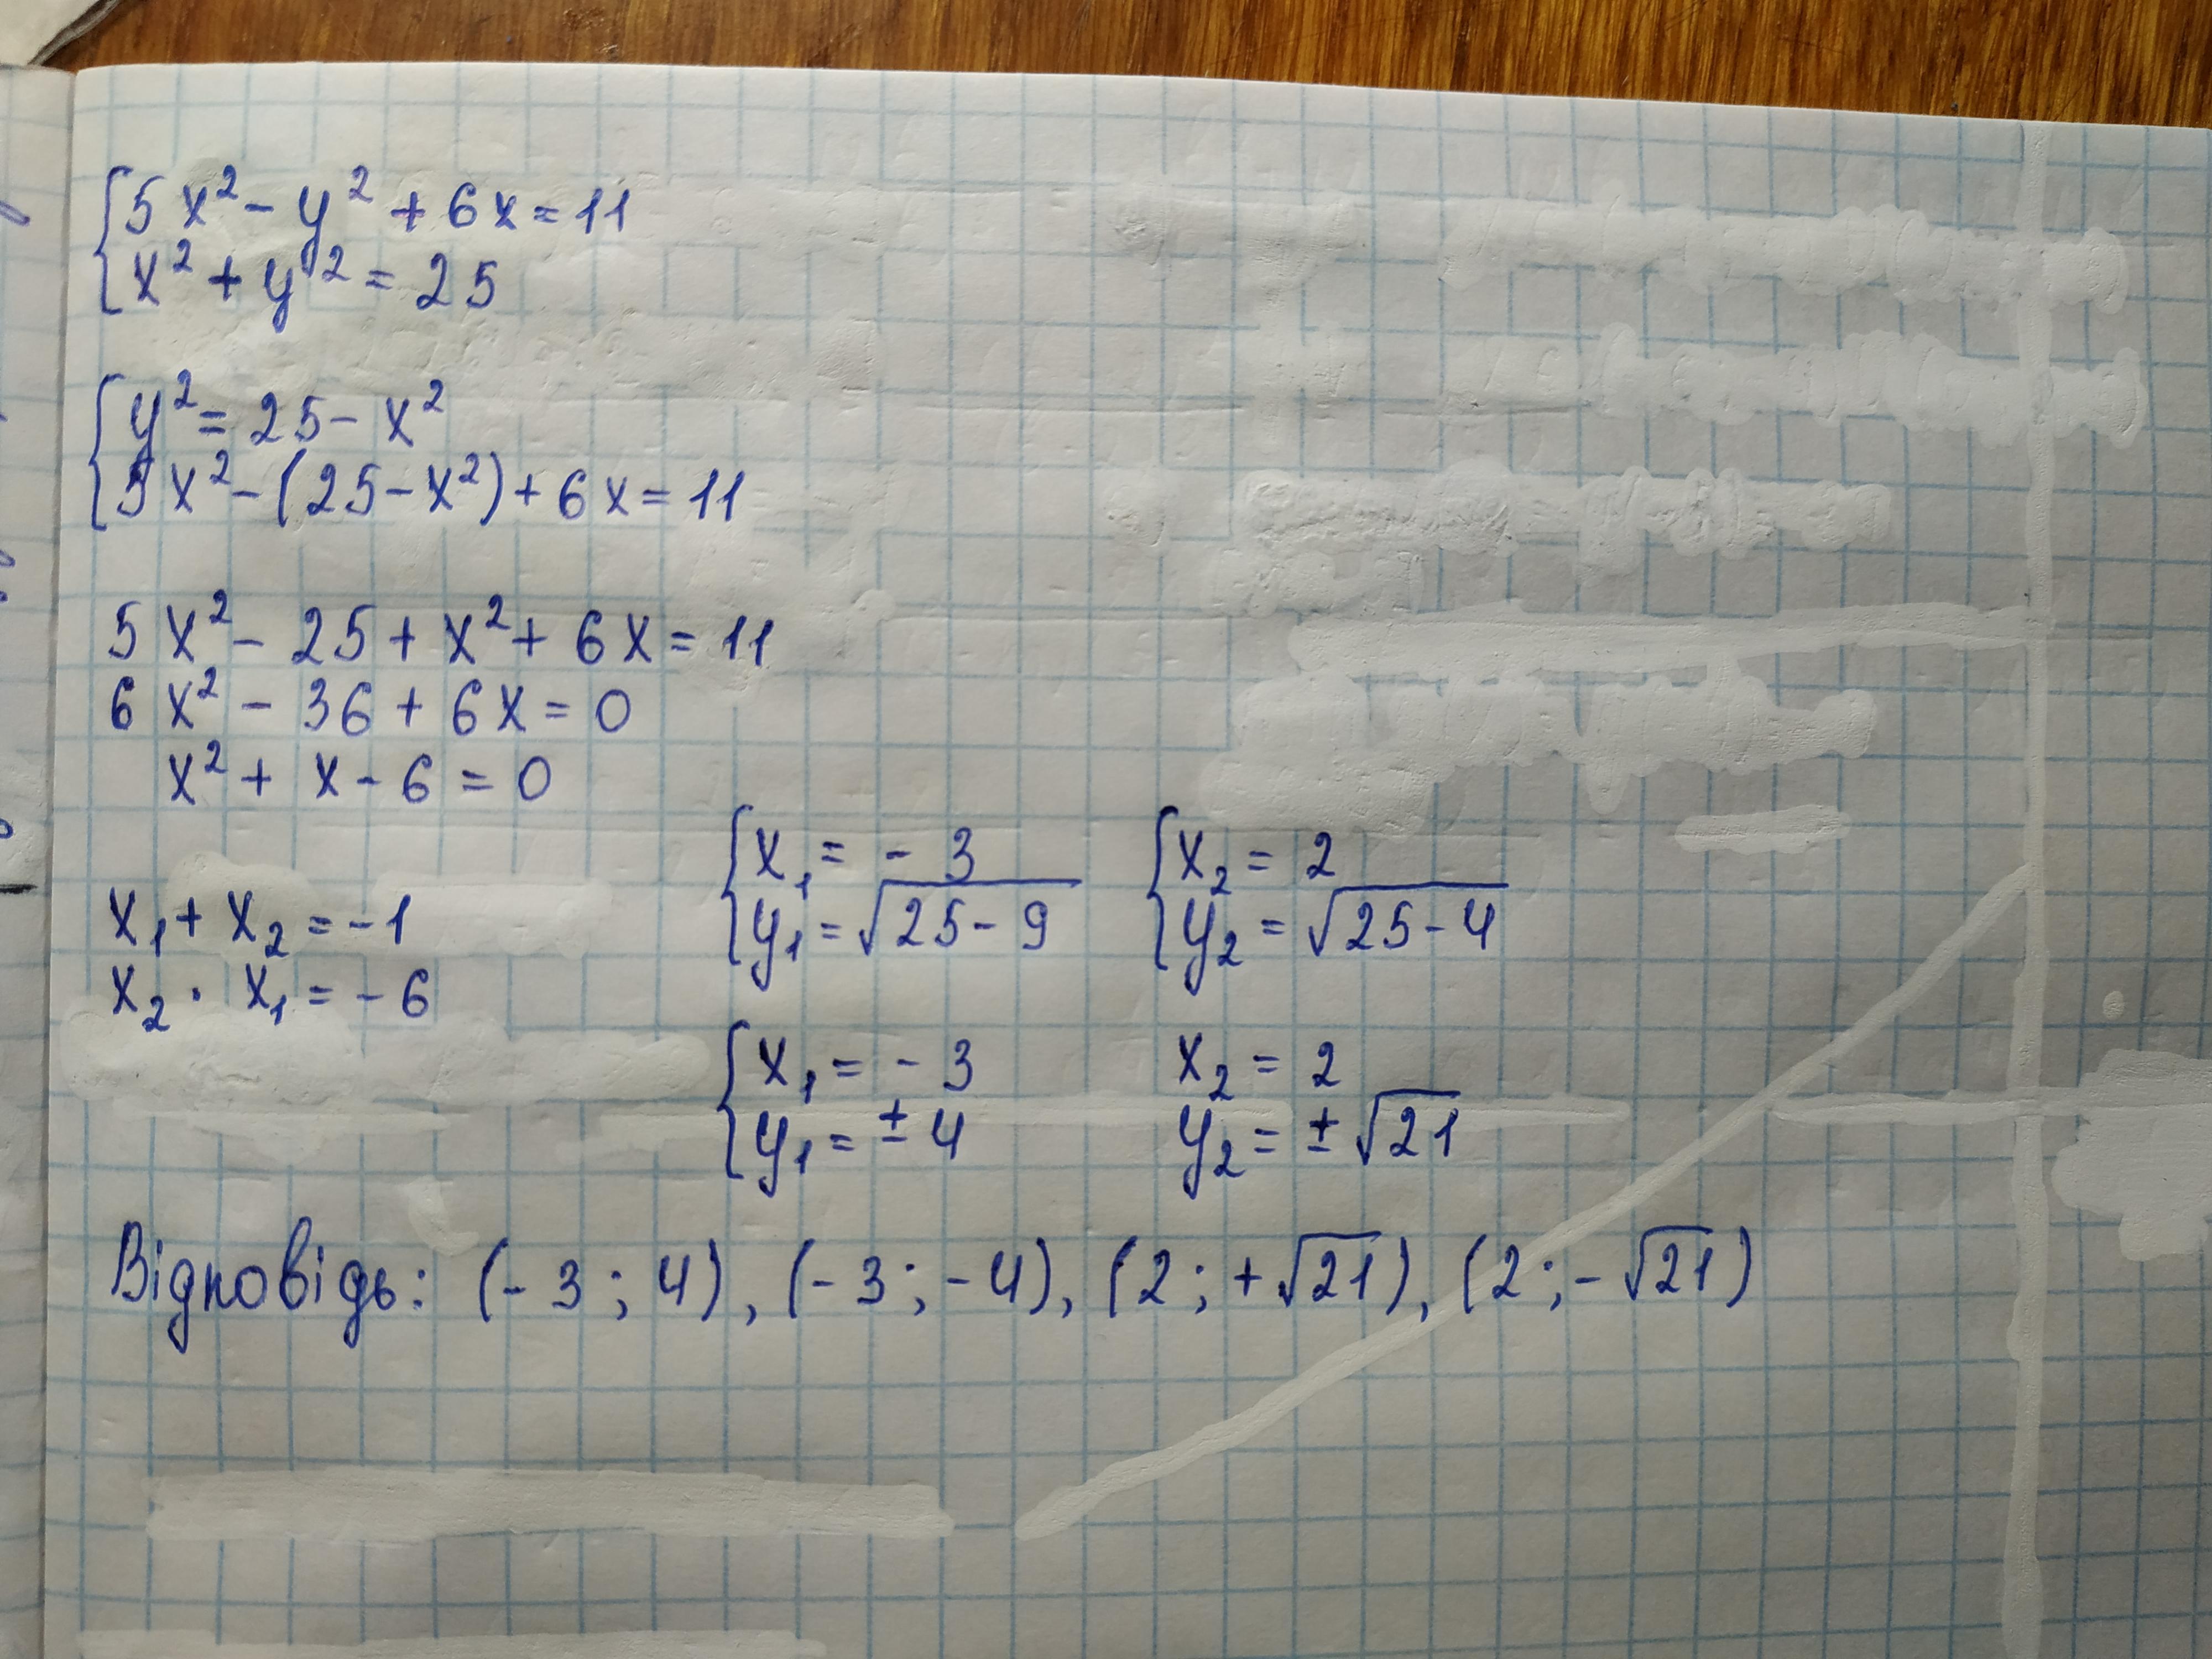 5x² - y² + 6x = 11
x² + y² = 25
y² = 25 - x²
5x² - (25 - x²) + 6x = 11
5x² - 25 + x² + 6x = 11
6x² - 36 + 6x = 0
x² + x - 6 = 0
x₁ + x₂ = -1
x₂ · x₁ = -6
x₁ = -3
y₁ = √(25 - 9)
x₂ = 2
y₂ = √(25 - 4)
x₁ = -3
y₁ = ± 4
x₂ = 2
y₂ = ± √21
Відповідь: (-3; 4), (-3; -4), (2; +√21), (2; -√21)